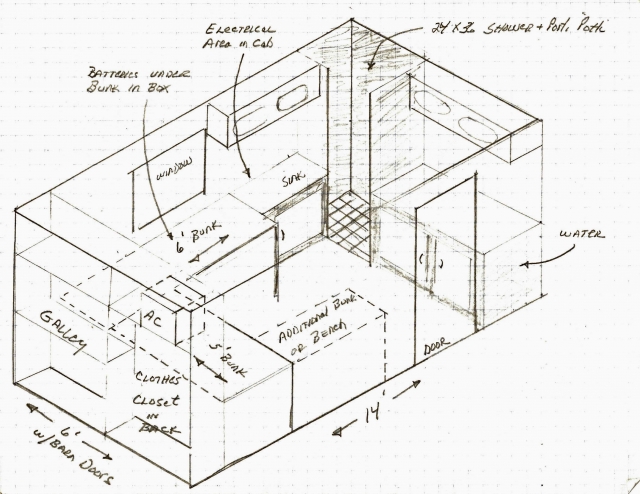 Electrical
Area in Cab
24 x 36 Shower + Port. Path
Batteries under
Bunk in Box
Window
Sink
6' Bunk
Water
AC
Galley
5' Bunk
Additional Bunk
or Bench
Door
Clothes
Closet
in
Back
14'
6'
w/Barn Doors